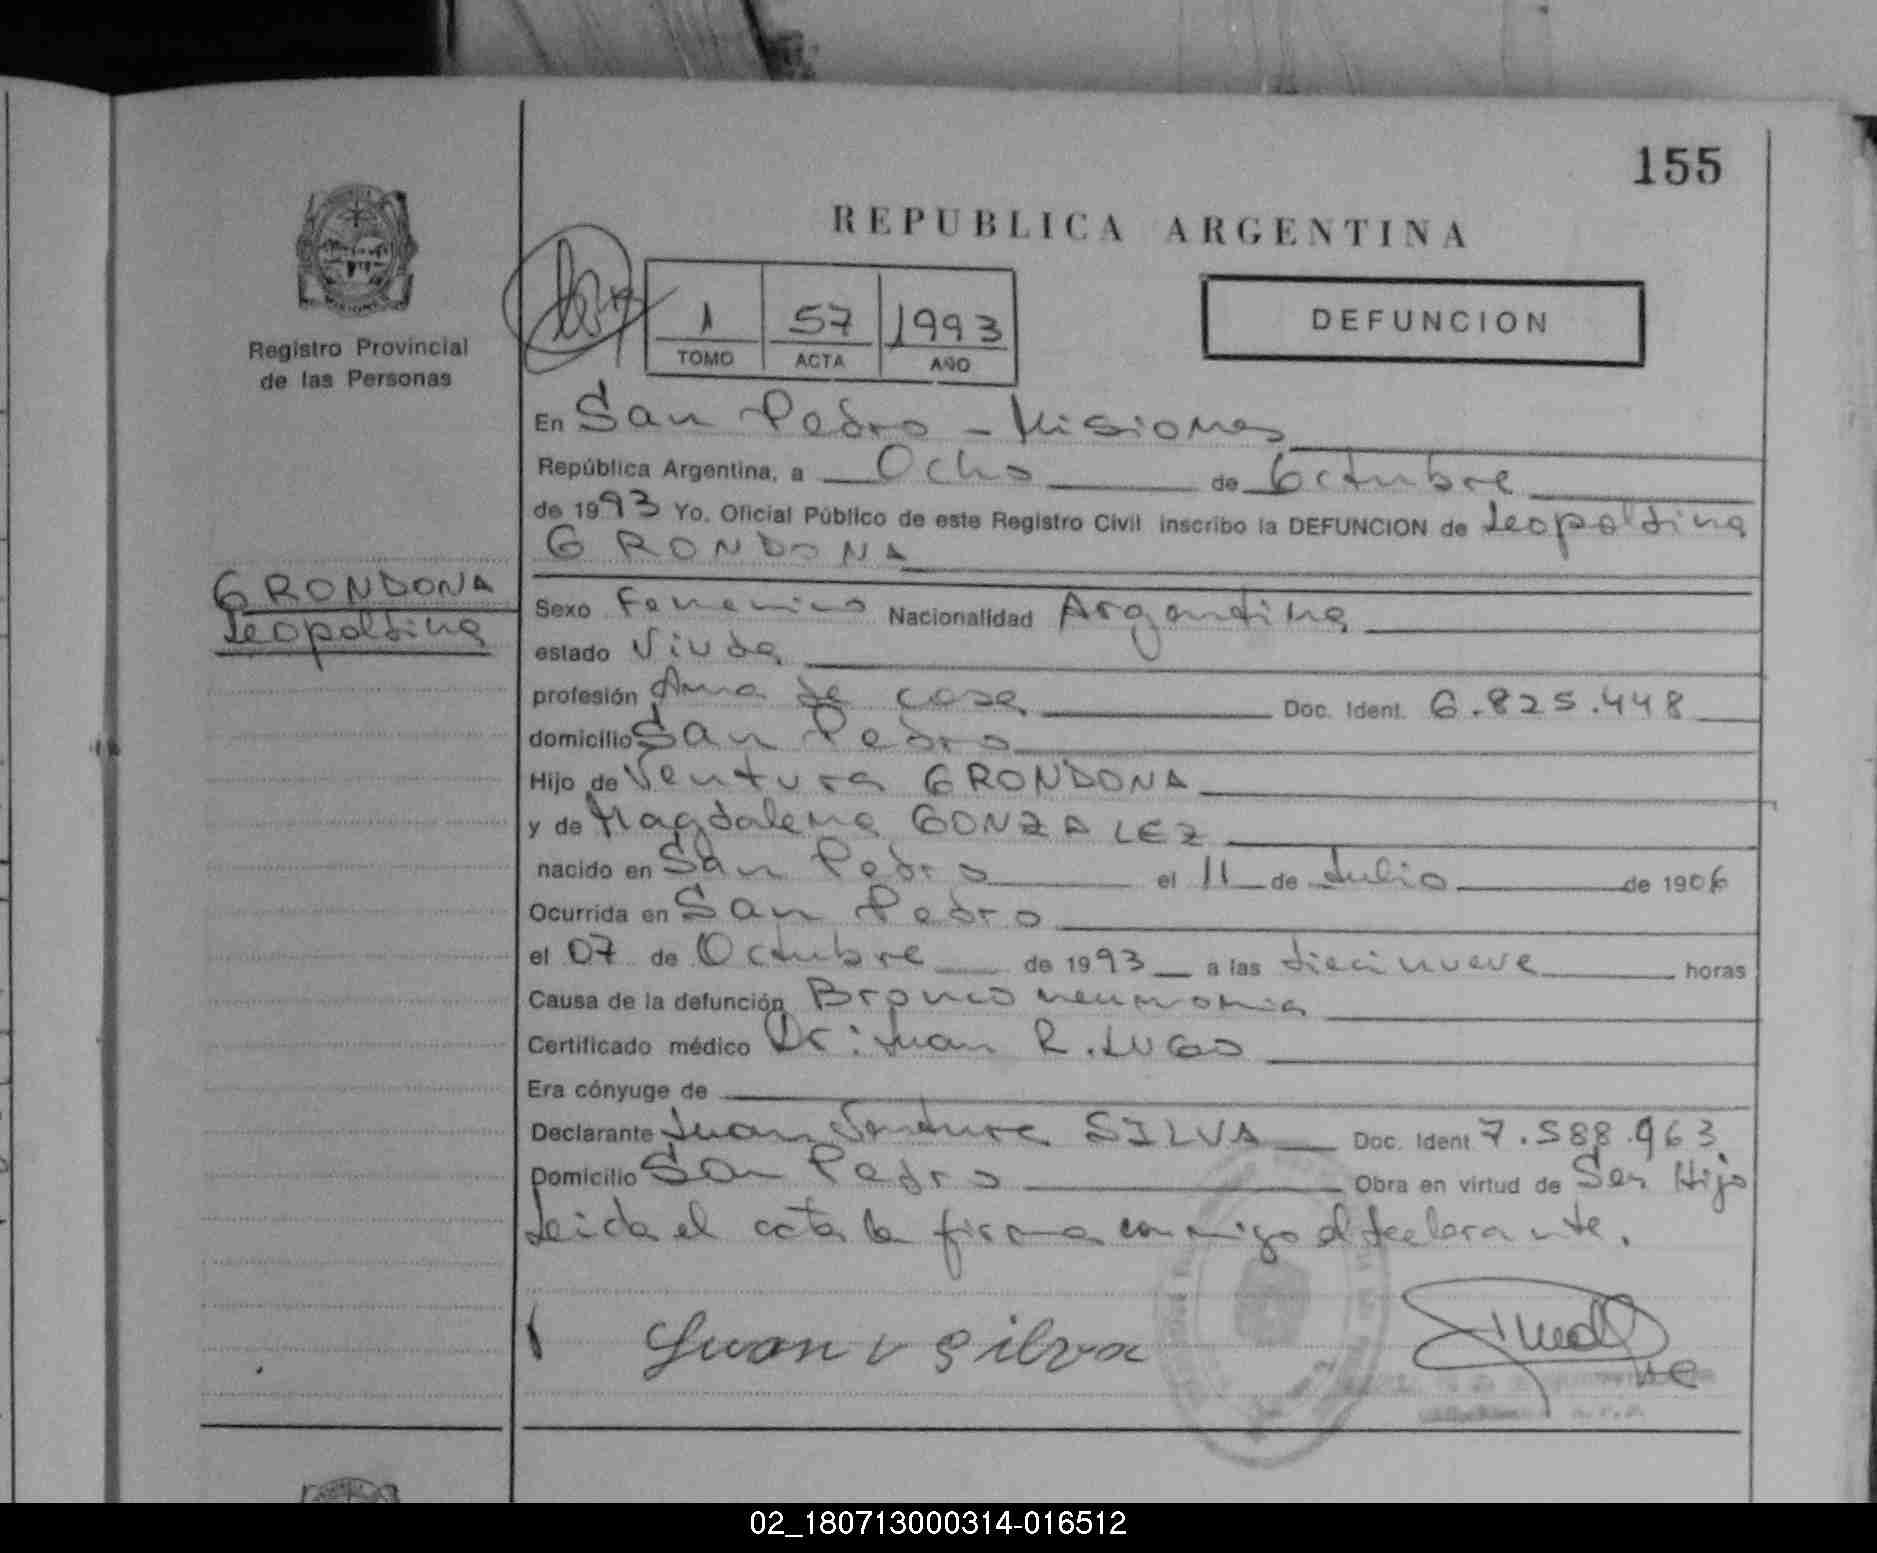 155
REPUBLICA ARGENTINA
Registro Provincial
de las Personas
1 57 1993
TOMO ACTA AÑO
DEFUNCION
En San Pedro - Misiones
República Argentina, a Ocho de Octubre
de 1993 Yo, Oficial Público de este Registro Civil inscribo la DEFUNCION de Leopoldina
GRONDONA
GRONDONA
Leopoldina
Sexo Femenino Nacionalidad Argentina
estado Viuda
profesión Ama de casa Doc. Ident. 6.825.448
domicilio San Pedro
Hijo de Ventura GRONDONA
y de Magdalena GONZALEZ
nacido en San Pedro el 11 de Julio de 1906
Ocurrida en San Pedro
el 07 de Octubre de 1993 a las diecinueve horas
Causa de la defunción Bronconeumonia
Certificado médico Dr: Juan R. LUGO
Era cónyuge de
Declarante Juan Ventura SILVA Doc. Ident 7.588.963
Domicilio San Pedro Obra en virtud de Ser Hijo
Leida el acta la firma conmigo el declarante.
Juan V Silva
02_180713000314-016512